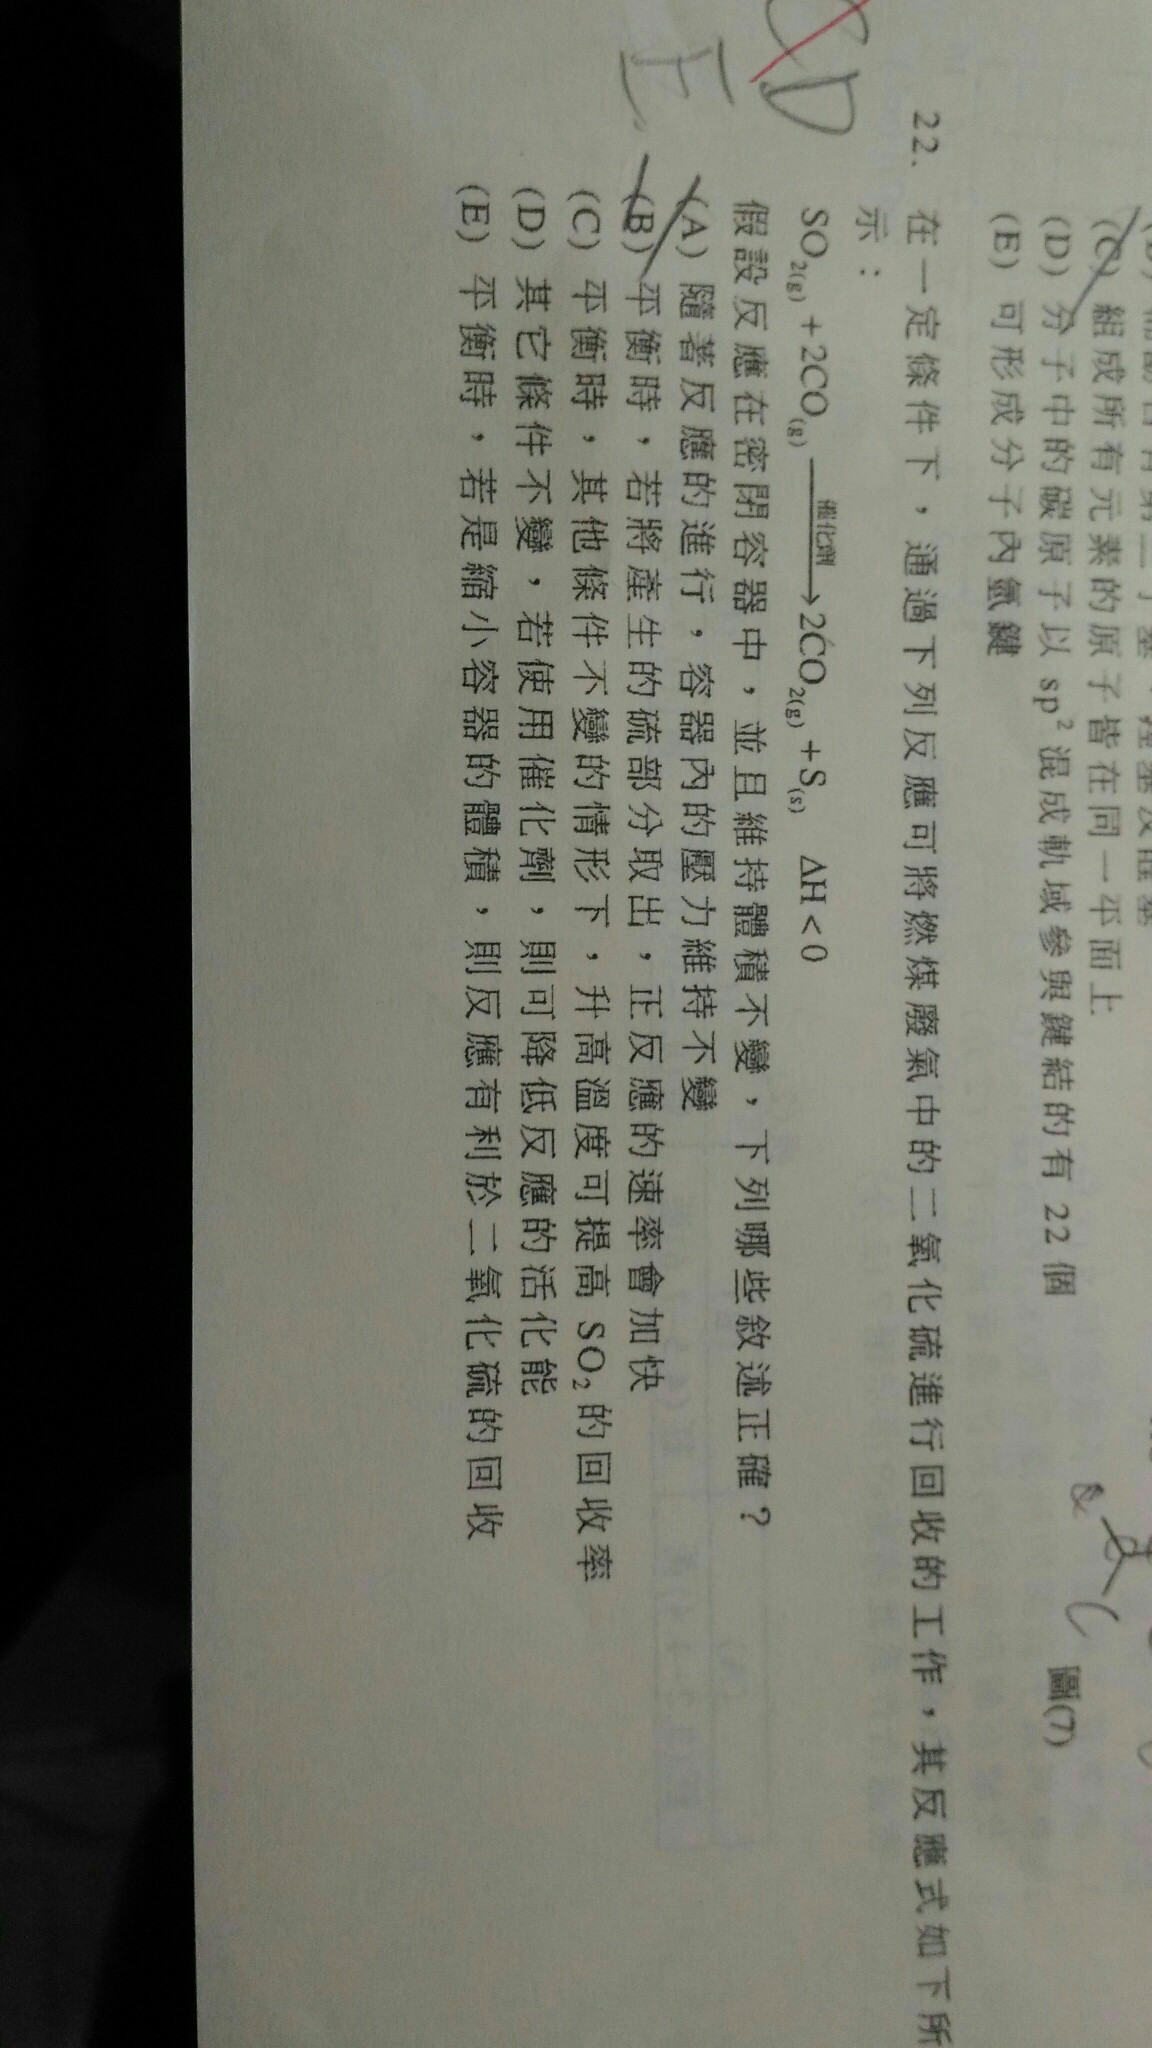 (C) 組成所有元素的原子皆在同一平面上
(D) 分子中的碳原子以 sp² 混成軌域參與鍵結的有 22 個
(E) 可形成分子內氫鍵
圖(7)
22. 在一定條件下，通過下列反應可將燃煤廢氣中的二氧化硫進行回收的工作，其反應式如下所
示：
SO₂(g) + 2CO(g) ─催化劑→ 2CO₂(g) + S(s)　ΔH < 0
假設反應在密閉容器中，並且維持體積不變，下列哪些敘述正確？
(A) 隨著反應的進行，容器內的壓力維持不變
(B) 平衡時，若將產生的硫部分取出，正反應的速率會加快
(C) 平衡時，其他條件不變的情形下，升高溫度可提高 SO₂ 的回收率
(D) 其它條件不變，若使用催化劑，則可降低反應的活化能
(E) 平衡時，若是縮小容器的體積，則反應有利於二氧化硫的回收
D
E